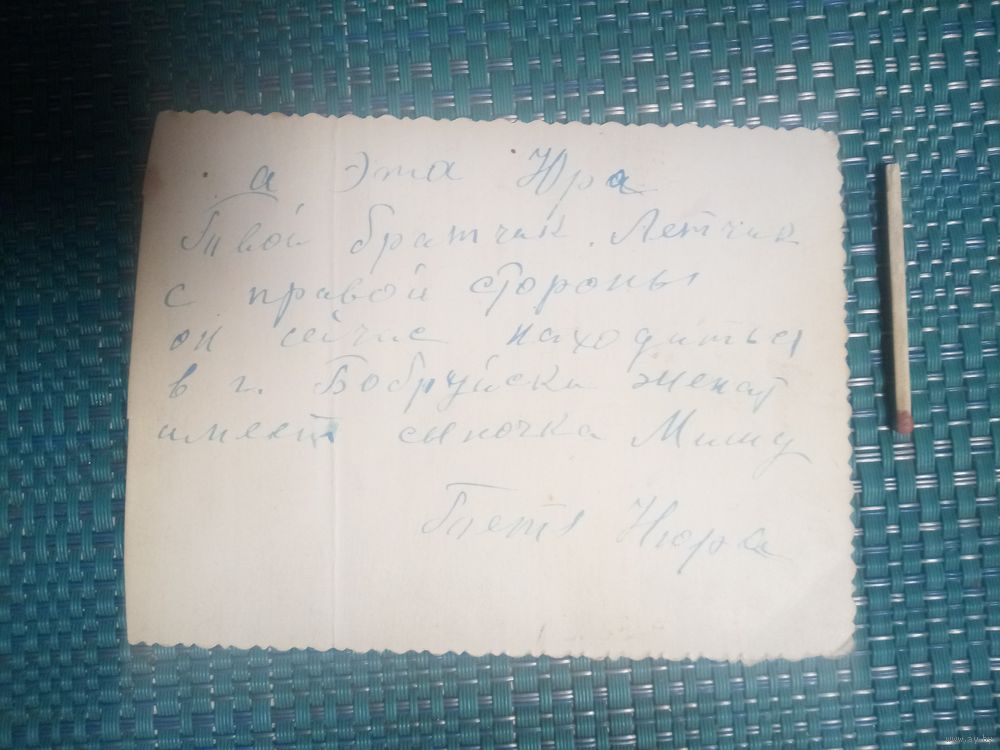 а Эта Юра
Твой братчик. Летчик
с правой стороны
он сейчас находиться
в г. Бобруйски женат
имеет сыночка Мишу
Тетя Нюра
www.ay.by